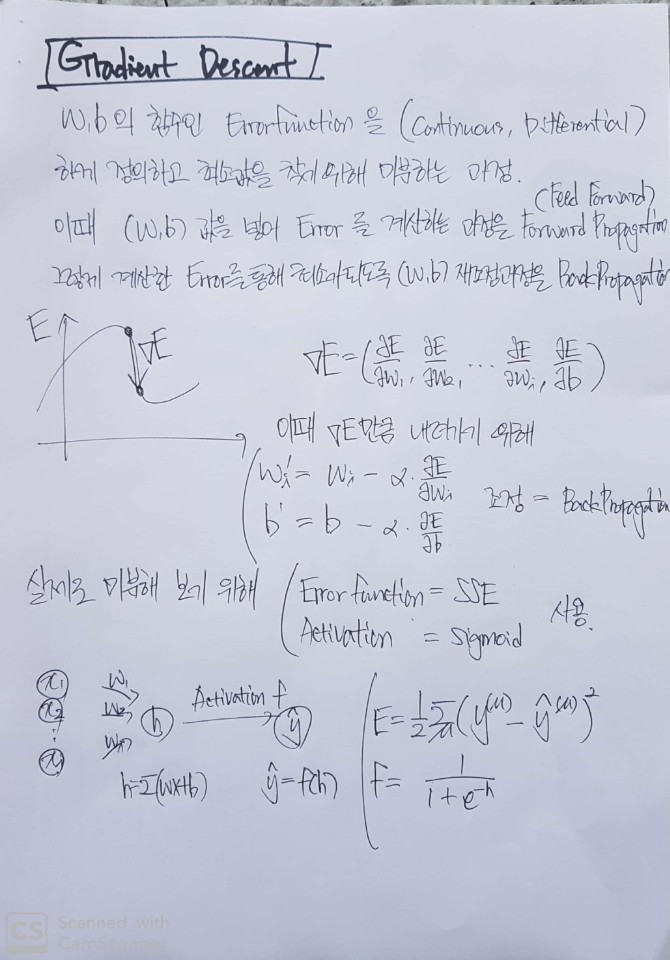 Gradient Descent
W,b의 함수인 Error function 을 (Continuous, Differential)
하게 정의하고 최소값을 찾기 위해 미분하는 과정.
(Feed Forward)
이때 (W,b) 값을 넣어 Error 를 계산하는 과정을 Forward Propagation
그렇게 계산한 Error를 통해 최소가 되도록 (W,b) 재조정과정을 BackPropagation
E
∇E
∇E = (∂E/∂W₁, ∂E/∂W₂, ... ∂E/∂Wᵢ, ∂E/∂b)
이때 ∇E만큼 내려가기 위해
Wᵢ' = Wᵢ - α · ∂E/∂Wᵢ
조정 = BackPropagation
b' = b - α · ∂E/∂b
실제로 미분해 보기 위해
Error function = SSE
Activation = Sigmoid
사용.
x₁ W₁
x₂ W₂ h Activation f ŷ
⋮
h=Σ(wx+b) ŷ=f(h)
E = 1/2 Σ (y⁽ᵘ⁾ - ŷ⁽ᵘ⁾)²
f = 1/(1 + e⁻ʰ)
CS
Scanned with
CamScanner